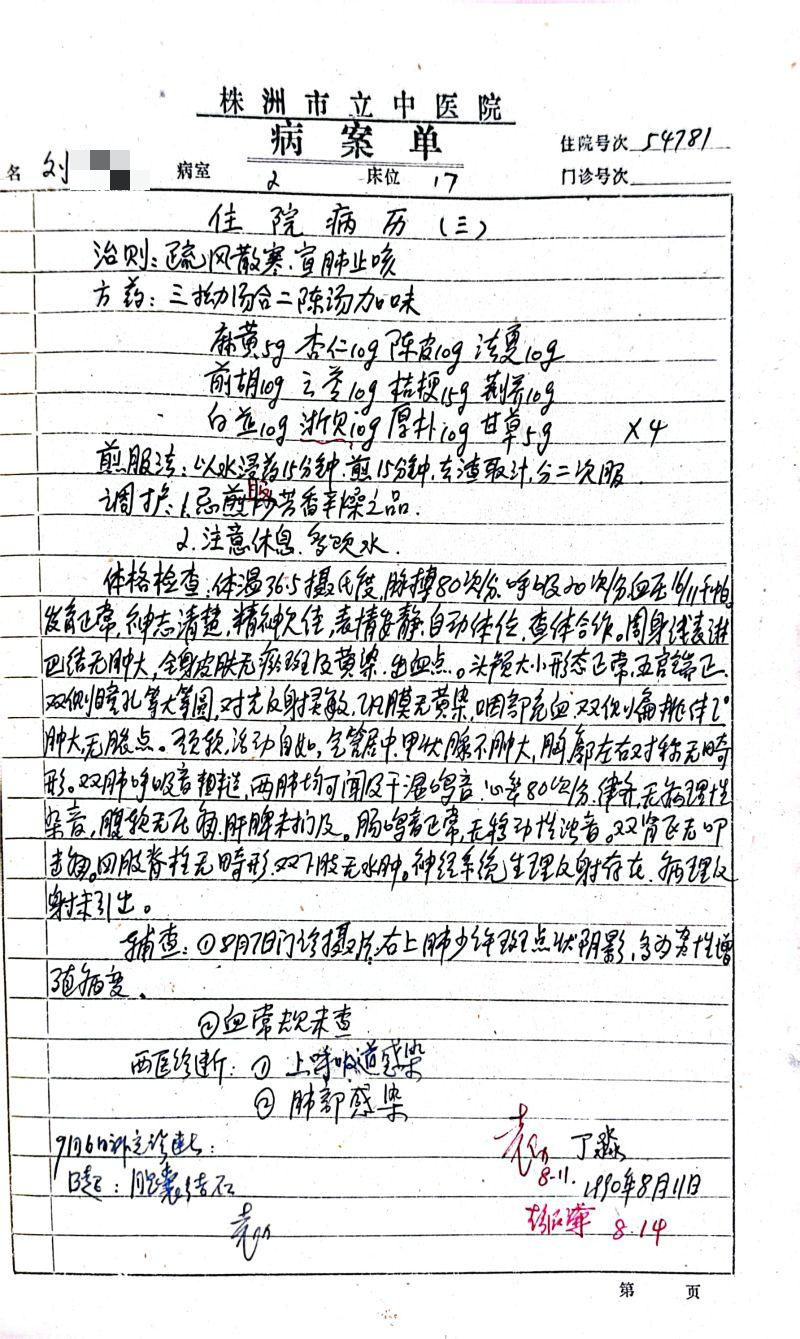 株洲市立中医院
病案单
住院号次 54781
名 刘 病室 2 床位 17 门诊号次
住院病历(三)
治则:疏风散寒.宣肺止咳
方药:三拗汤合二陈汤加味
麻黄5g 杏仁10g 陈皮10g 法夏10g
前胡10g 云苓10g 桔梗15g 荆芥10g
白芷10g 浙贝10g 厚朴10g 甘草5g ×4
煎服法:以水浸药15分钟.煎15分钟.去渣取汁.分二次服
调护:1.忌煎服芳香辛燥之品.
2.注意休息.多饮水.
体格检查:体温36.5摄氏度,脉搏80次/分.呼吸20次/分.血压16/11千帕.
发育正常,神志清楚,精神欠佳,表情安静.自动体位,查体合作。周身浅表淋
巴结无肿大,全身皮肤无瘀斑及黄染.出血点。头颅大小形态正常,五官端正.
双侧瞳孔等大等圆,对光反射灵敏.巩膜无黄染,咽部充血.双侧扁桃体I°
肿大无脓点。颈软,活动自如,气管居中.甲状腺不肿大,胸廓左右对称无畸
形。双肺呼吸音粗糙,两肺均可闻及干湿鸣音.心率80次/分.律齐,无病理性
杂音,腹软无压痛.肝脾未扪及。肠鸣音正常,无移动性浊音。双肾区无叩
击痛。四肢脊柱无畸形.双下肢无水肿。神经系统生理反射存在.病理反
射未引出。
辅查:①8月7日门诊摄片.右上肺少许斑点状阴影,多为增
殖病变.
②血常规未查
西医诊断:① 上呼吸道感染
② 肺部感染
9月6日补充诊断:
B超:胆囊结石
丁淼
8-11.
1990年8月11日
8.14
第 页